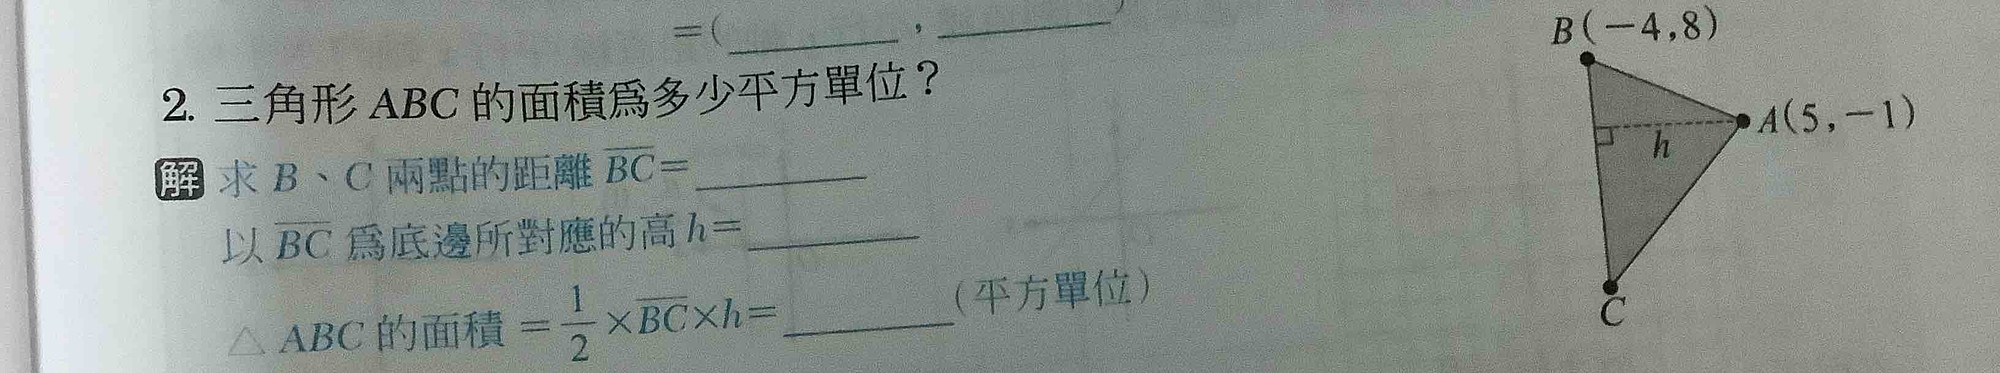 =(______,______)
2. 三角形 ABC 的面積為多少平方單位？
解 求 B、C 兩點的距離 BC=______
以 BC 為底邊所對應的高 h=______
△ABC 的面積 = 1/2 ×BC×h=______(平方單位)
B(−4,8)
A(5,−1)
h
C